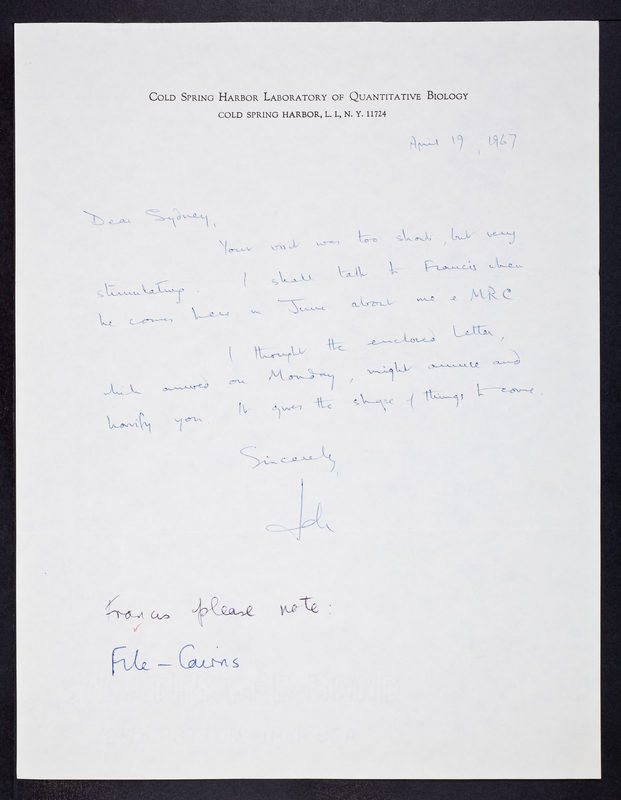 COLD SPRING HARBOR LABORATORY OF QUANTITATIVE BIOLOGY
COLD SPRING HARBOR, L. I., N. Y. 11724
April 19, 1967
Dear Sydney,
Your visit was too short, but very
stimulating. I shall talk to Francis when
he comes here in June about me & MRC
I thought the enclosed letter,
which arrived on Monday, might amuse and
horrify you. It gives the shape of things to come.
Sincerely,
John
Francis please note:
File - Cairns